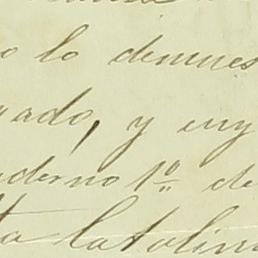 o lo demues
gado, y cuy
aderno 1º de
ta Catolina